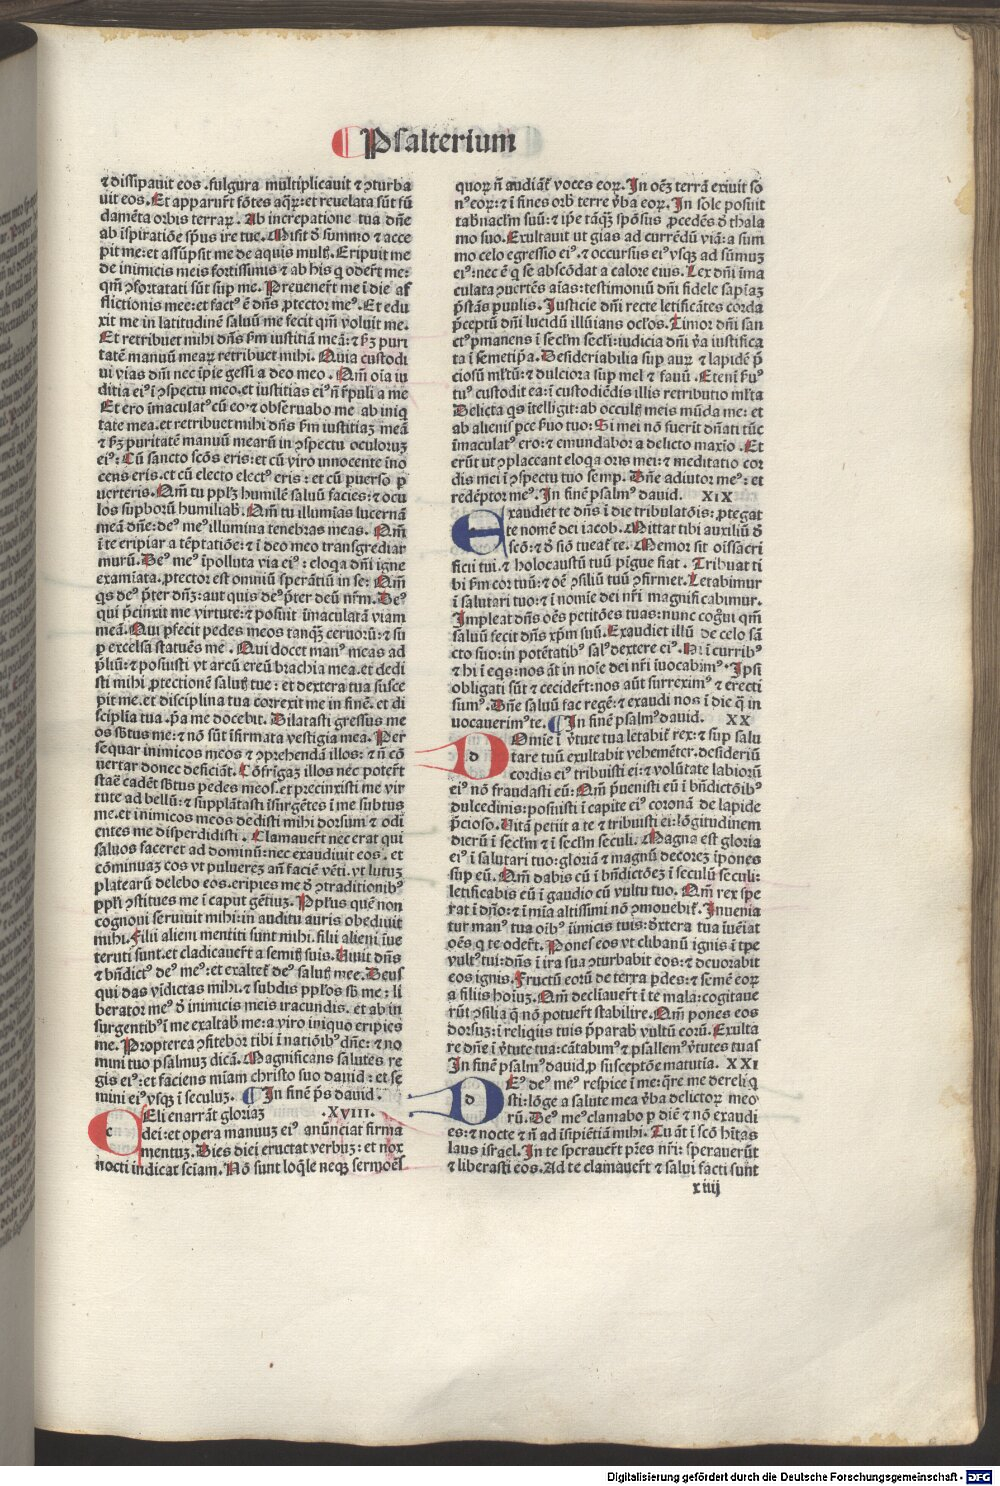 Psalterium
⁊ dissipauit eos .fulgura multiplicauit ⁊ ꝯturba
uit eos. Et apparuer̄t fōtes aqꝝ: et reuelata sūt fū
damēta orbis terraꝝ. Ab increpatione tua dn̄e
ab ispiratiōe sp̄us ire tue. Misit d̄ summo ⁊ acce
pit me: et assūpsit me de aquis multꝭ. Eripuit me
de inimicis meis fortissimis ⁊ ab his q̄ oder̄t me:
qm̄ ꝯfortati sūt suꝑ me. Preuener̄t me ī die af
flictionis mee: et factꝰ ē dn̄s ꝓtector meꝰ. Et edu
xit me in latitudinē saluū me fecit qm̄ voluit me.
Et retribuet mihi dn̄s ẜm iustitiā meā: ⁊ ẜꝫ puri
tatē manuū meaꝝ retribuet mihi. Quia custodi
ui vias dn̄i nec īpie gessi a deo meo . Qm̄ oīa iu
ditia eiꝰ ī ꝯspectu meo. et iustitias eiꝰ n̄ r̄puli a me
Et ero īmaculatꝰ cū eo ⁊ obseruabo me ab iniq̄
tate mea. et retribuet mihi dn̄s ẜm iustitiaꝫ meā
⁊ ẜꝫ puritatē manuū mearū in ꝯspectu oculoruꝫ
eiꝰ: Cū sancto scōs eris: et cū viro innocente īno
cens eris. et cū electo electꝰ eris: et cū puerso ꝑ
uerteris. Qm̄ tu ppl̄ꝫ humilē saluū facies: ⁊ ocu
los supborū humiliab̄. Qm̄ tu illumīas lucernā
meā dn̄e: deꝰ meꝰ illumina tenebras meas. Qm̄
ī te eripiar a tēptatiōe: ⁊ ī deo meo transgrediar
murū. Deꝰ meꝰ īpolluta via eiꝰ: eloqa dn̄i igne
examīata. ꝓtector est omniū sperātiū in se: Qm̄
qs deꝰ p̄ter dn̄ꝫ: aut quis deꝰ p̄ter deū nr̄m. Deꝰ
qui p̄cinxit me virtute: ⁊ posuit īmaculatā viam
meā. Qui ꝑfecit pedes meos tanqꝫ ceruorū: ⁊ su
ꝑ excelsa statuēs me . Qui docet manꝰ meas ad
p̄liū: ⁊ posuisti vt arcū ereū brachia mea. et dedi
sti mihi ꝓtectionē salutꝭ tue: et dextera tua susce
pit me. et disciplina tua correxit me in finē. et di
sciplia tua .ip̄a me docebit. Dilatasti gressus me
os sb̄tus me: ⁊ nō sūt īfirmata vestigia mea. Per
sequar inimicos meos ⁊ ꝯprehendā illos: ⁊ n̄ cō
uertar donec deficiāt. Cōfrigaꝫ illos nec poter̄t
stare cadēt sb̄tus pedes meos. et precinxisti me vir
tute ad bellū: ⁊ supplātasti īsurgētes ī me subtus
me. et inimicos meos dedisti mihi dorsum ⁊ odi
entes me disperdidisti . Clamauer̄t nec erat qui
saluos faceret ad dominū: nec exaudiuit eos . et
cōminuaꝫ eos vt puluereꝫ an̄ faciē vēti. vt lutuꝫ
platearū delebo eos. eripies me d̄ ꝯtraditionibꝰ
ppl̄i ꝯstitues me ī caput gētiuꝫ. Ppl̄us quē non
cognoui seruiuit mihi: in auditu auris obediuit
mihi. Filii alieni mentiti sunt mihi. filii alieni īue
terati sunt. et cladicauer̄t a semitꝭ suis. Uiuit dn̄s
⁊ bn̄dictꝰ deꝰ meꝰ: et exaltet̄ deꝰ salutꝭ mee. Deus
qui das vīdictas mihi. ⁊ subdis ppl̄os sb̄ me: li
berator meꝰ d̄ inimicis meis iracundis. et ab in
surgentibꝰ ī me exaltab̄ me: a viro iniquo eripies
me. Propterea ꝯfitebor tibi ī natiōibꝰ dn̄e: ⁊ no
mini tuo psalmuꝫ dicā. Magnificans salutes re
gis eiꝰ: et faciens mīam christo suo dauid: et se
mini eiꝰ vsqꝫ ī seculuꝫ. In finē ps̄ dauid.
Celi enarrāt gloriaꝫ .XVIII.
dei: et opera manuuꝫ eiꝰ anūnciat firma
mentuꝫ. Dies diei eructat verbuꝫ: et nox
nocti indicat sciam. Nō sunt loq̄le neqꝫ sermōes
quoꝝ n̄ audiāt̄ voces eoꝝ. In oēꝫ terrā exiuit so
nꝰ eoꝝ: ⁊ ī fines orb̄ terre v̄ba eoꝝ. In sole posuit
tab̄nacl̄m suū: ⁊ ip̄e tāqꝫ spōsus ꝓcedēs d̄ thala
mo suo. Exultauit ut gias ad currēdū viā: a sum
mo celo egressio eiꝰ. ⁊ occursus eiꝰ vsqꝫ ad sūmuꝫ
eiꝰ: nec ē q̄ se abscōdat a calore eius. Lex dn̄i īma
culata ꝯuertēs aīas: testimoniū dn̄i fidele sapīaꝫ
p̄stās ꝑuulis. Iusticie dn̄i recte letificātes corda
p̄ceptū dn̄i lucidū illūians ocl̄os. Timor dn̄i san
ctꝰ ꝑmanens ī secl̄m secl̄i: iudicia dn̄i v̄a iustifica
ta ī semetip̄a. Desiderabilia suꝑ auꝝ ⁊ lapidē p̄
ciosū ml̄tū: ⁊ dulciora suꝑ mel ⁊ fauū . Etenī ẜuꝰ
tuꝰ custodit ea: ī custodiēdis illis retributio ml̄ta
Delicta qs ītelligit: ab occultꝭ meis mūda me: et
ab alienis ꝑce ẜuo tuo: Si mei nō fuerīt dn̄ati tūc
īmaculatꝰ ero: ⁊ emundabor a delicto maxīo . Et
erūt ut ꝯplaceant eloqa oris mei: ⁊ meditatio cor
dis mei ī ꝯspectu tuo semꝑ. Dn̄e adiutor meꝰ: et
redēptor meꝰ. In finē psalmꝰ dauid. XIX
Exaudiet te dn̄s ī die tribulatōis: ꝓtegat
te nomē dei iacob. Mittat tibi auxiliū d̄
scō: ⁊ d̄ siō tueat̄ te. Memor sit oīs sacri
ficii tui. ⁊ holocaustū tuū pīgue fiat. Tribuat ti
bi ẜm cor tuū: ⁊ oē ꝯsiliū tuū ꝯfirmet. Letabimur
ī salutari tuo: ⁊ ī nomīe dei nr̄i magnificabimur.
Impleat dn̄s oēs petitōes tuas: nunc cogūi qm̄
saluū fecit dn̄s xp̄m suū. Exaudiet illū de celo sā
cto suo: in potētatibꝰ salꝰ dextere eiꝰ. Hi ī curribꝰ
⁊ hi ī eqs: nos āt in noīe dei nr̄i īuocabimꝰ. Ipsi
obligati sūt ⁊ cecidert̄: nos aūt surreximꝰ ⁊ erecti
sumꝰ. Dn̄e saluū fac regē: ⁊ exaudi nos ī die q̄ in
uocauerimꝰ te. In finē psalmꝰ dauid. XX
Domīe ī v̄tute tua letabit̄ rex: ⁊ suꝑ salu
tare tuū exultabit vehemēter. desideriū
cordis eiꝰ tribuisti ei: ⁊ volūtate labiorū
eiꝰ nō fraudasti eū: Qm̄ p̄uenisti eū ī bn̄dictōibꝰ
dulcedinis: posuisti ī capite eiꝰ coronā de lapide
p̄cioso. Uitā petiit a te ⁊ tribuisti ei: lōgitudinem
dierū ī secl̄m ⁊ ī secl̄m seculi. Magna est gloria
eiꝰ ī salutari tuo: gloriā ⁊ magnū decoreꝫ īpones
suꝑ eū. Qm̄ dabis eū ī bn̄dictōeꝫ ī seculū seculi:
letificabis eū ī gaudio cū vultu tuo. Qm̄ rex spe
rat ī dn̄o: ⁊ ī mīa altissimi nō ꝯmouebit̄. Inuenia
tur manꝰ tua oībꝰ īimicis tuis: d̄xtera tua īuēiat
oēs q̄ te oder̄t. Pones eos vt clibanū ignis ī tp̄e
vultꝰ tui: dn̄s ī ira sua ꝯturbabit eos: ⁊ deuorabit
eos ignis. Fructū eorū de terra ꝑdes: ⁊ semē eoꝝ
a filiis hoīuꝫ. Qm̄ declīauer̄t ī te mala: cogitaue
rūt ꝯsilia q̄ nō potuer̄t stabilire. Qm̄ pones eos
dorsuꝫ: ī reliqiis tuis p̄parab̄ vultū eorū. Exulta
re dn̄e ī v̄tute tua: cātabimꝰ ⁊ psallemꝰ v̄tutes tuas
In finē psalmꝰ dauid, ꝓ susceptōe matutia. XXI
Deꝰ deꝰ meꝰ respice ī me: qr̄e me dereliq̄
sti: lōge a salute mea v̄ba delictoꝝ meo
rū. Deꝰ meꝰ clamabo ꝑ diē ⁊ nō exaudi
es: ⁊ nocte ⁊ n̄ ad īsipiētiā mihi. Tu āt ī scō hītas
laus israel. In te sperauer̄t pr̄es nr̄i: sperauerūt
⁊ liberasti eos. Ad te clamauer̄t ⁊ salui facti sunt
xiiij
Digitalisierung gefördert durch die Deutsche Forschungsgemeinschaft - DFG